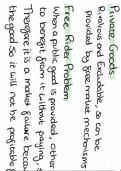 Private Goods:
Rivalrous and Excludable, so can be
Provided by free market mechanisms
Free Rider Problem
When a public good is provided, other
to benefit from it without paying,
Therefore it is a market failure becau
the good so it will not be profitable f